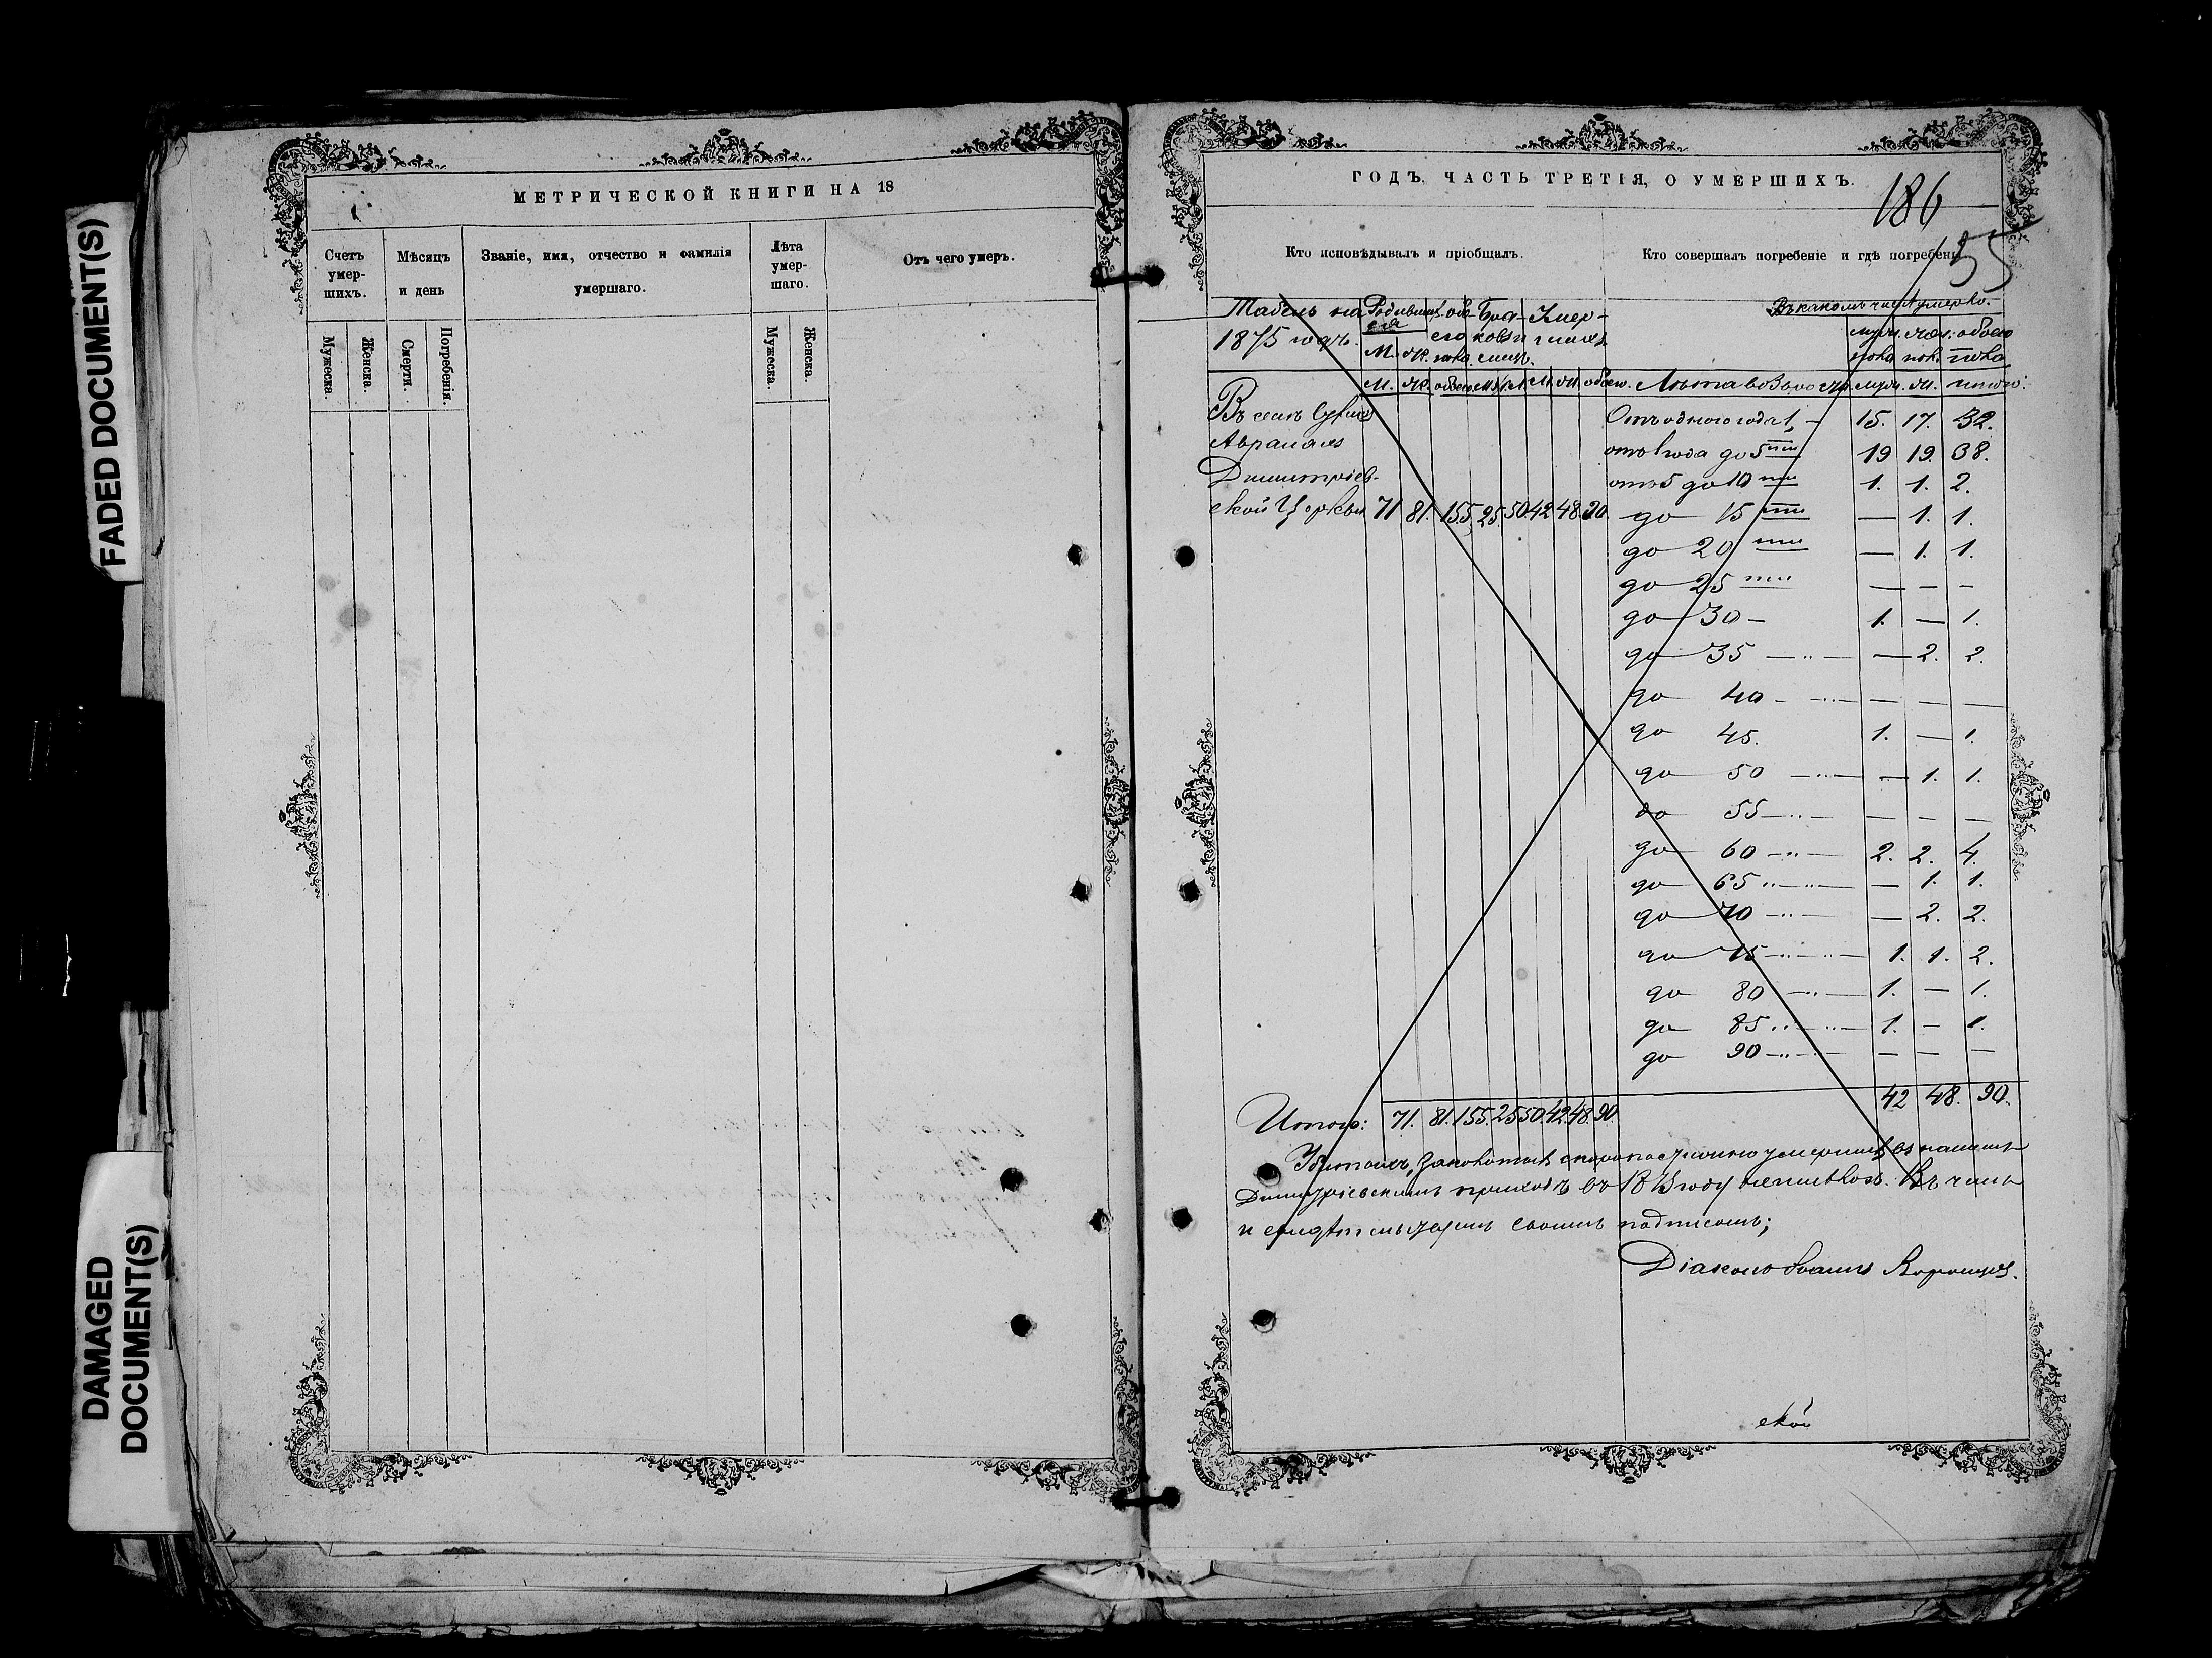 FADED DOCUMENT(S)
DAMAGED
DOCUMENT(S)
МЕТРИЧЕСКОЙ КНИГИ НА 18
Счетъ
умер-
шихъ.
Мѣсяцъ
и день
Званіе, имя, отчество и фамилія
умершаго.
Лѣта
умер-
шаго.
Отъ чего умеръ.
Мужеска.
Женска.
Смерти.
Погребенія.
Мужеска.
Женска.
ГОДЪ, ЧАСТЬ ТРЕТІЯ, О УМЕРШИХЪ.
186
155
Кто исповѣдывалъ и пріобщалъ.
Кто совершалъ погребеніе и гдѣ погребены
Табель на
1875 годъ.
М. Ж.
Лѣта
муж. жен. обоего
пола пол. пола
итого:
Въ селѣ
Дмитріев-
ской Церкви 71 81. 155 25 50 42 48 90
Отъ одного года 1, – 15. 17. 32.
отъ 1 года до 5 ти 19 19. 38.
отъ 5 до 10 ти 1. 1. 2.
до 15 ти — 1. 1.
до 20 ти — 1. 1.
до 25 ти — — –
до 30 – 1. — 1.
до 35 — — 2. 2.
до 40 — — —
до 45. 1. — 1.
до 50 — — 1. 1.
до 55 — — — —
до 60 — 2. 2. 4.
до 65 — — 1. 1.
до 70 — — 2. 2.
до 75 — 1. 1. 2.
до 80 — 1. – 1.
до 85 — 1. – 1.
до 90 — – — —
Итого: 71. 81. 155. 25 50. 42. 48. 90. 42 48. 90.
скоропостижно умершихъ въ нашемъ
Димитріевскомъ приходѣ въ 1875 году Въ чемъ
и своимъ подписомъ;
Діаконъ Іоаннъ
ской